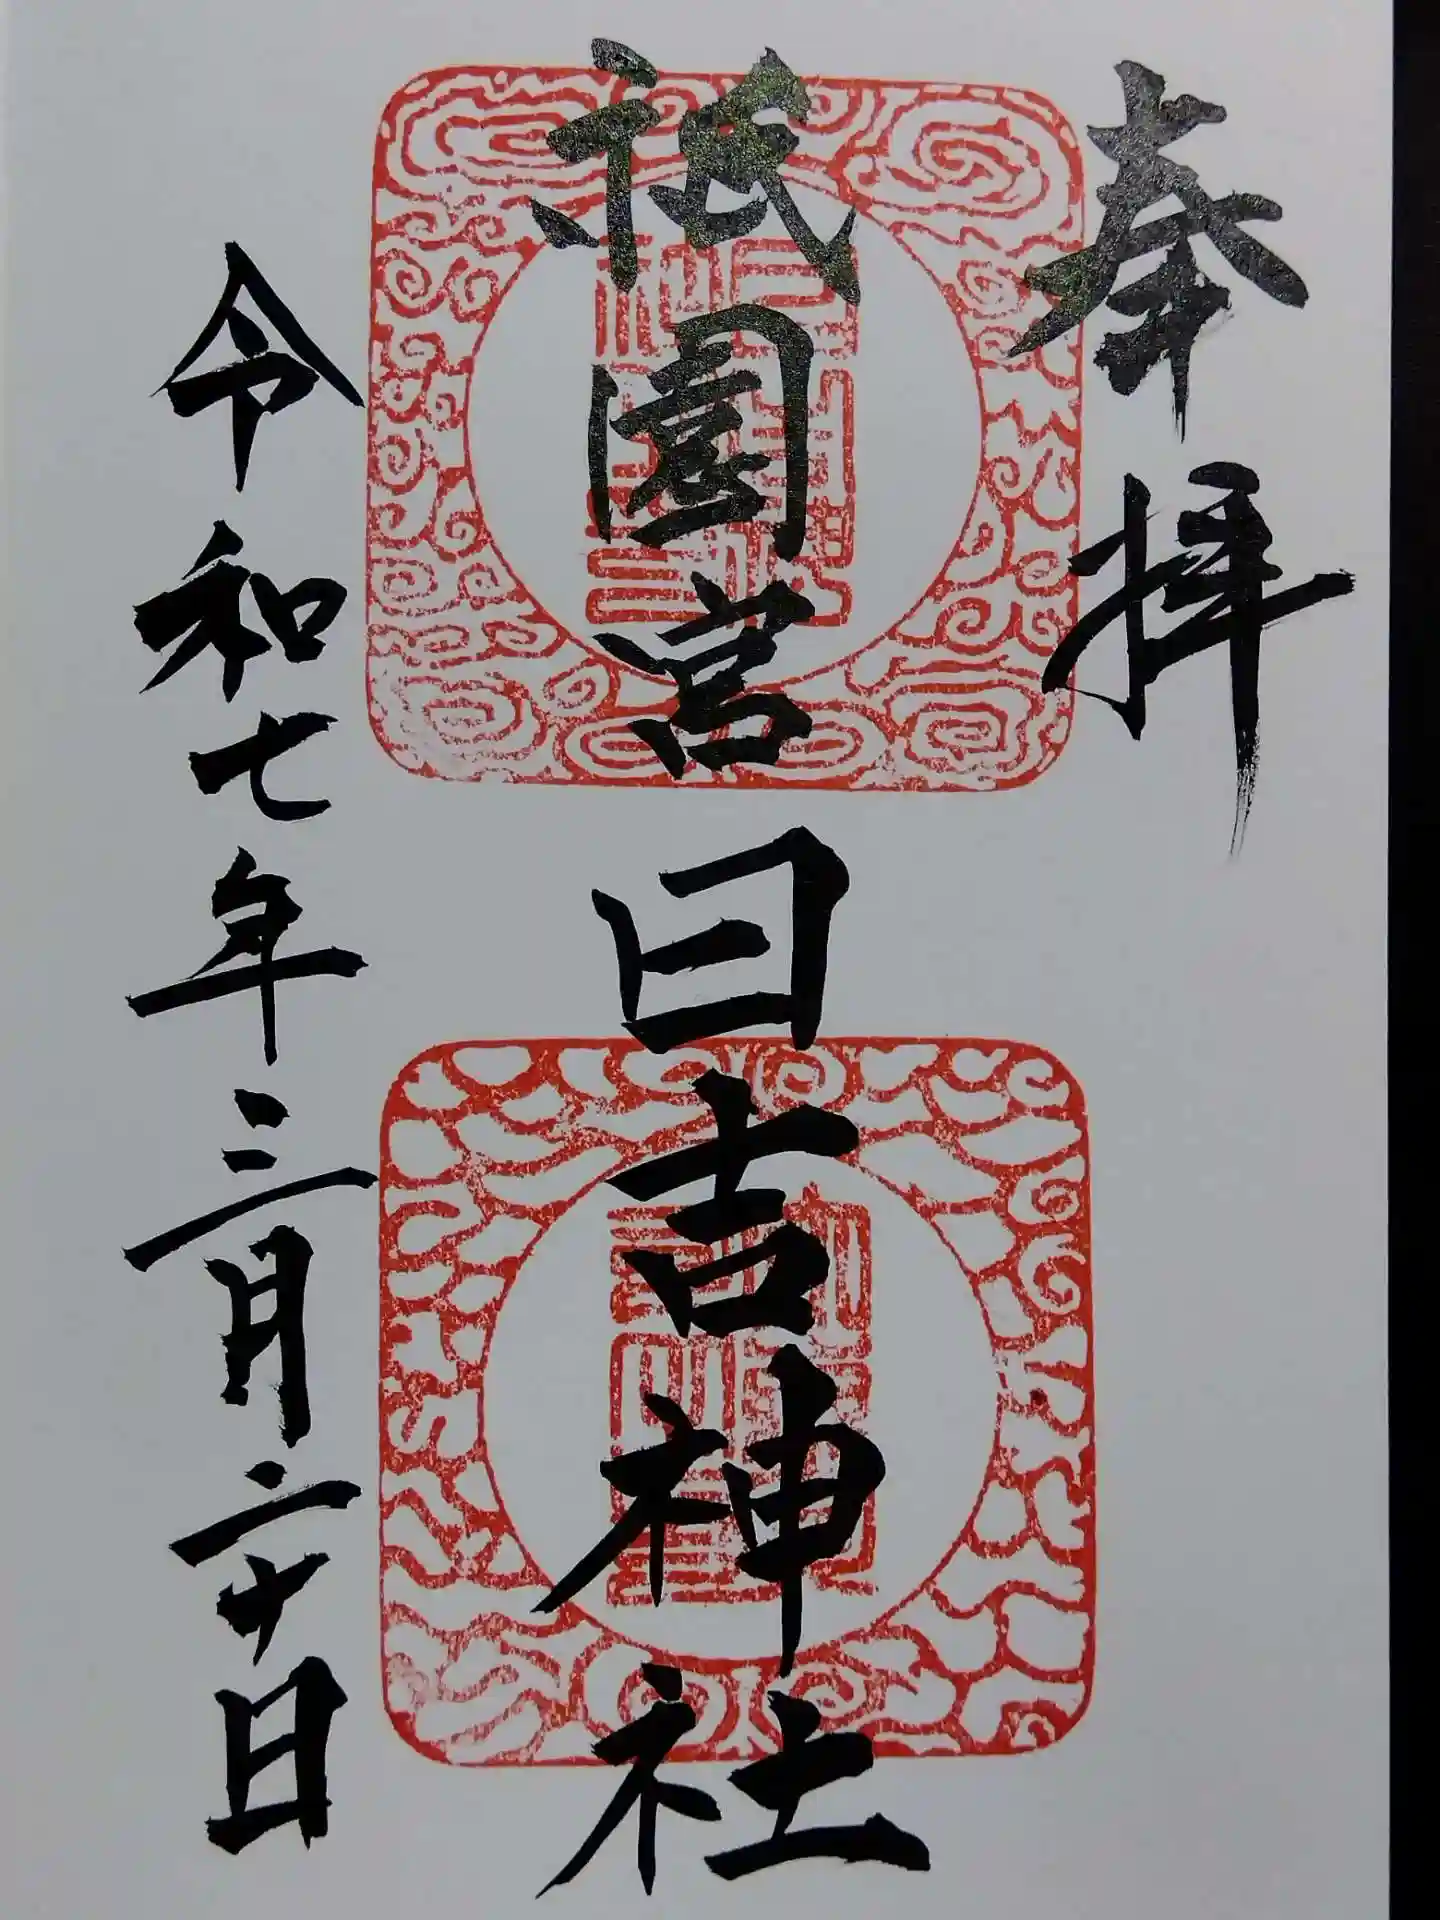 奉拝
祇園宮日吉神社
令和七年三月二十日